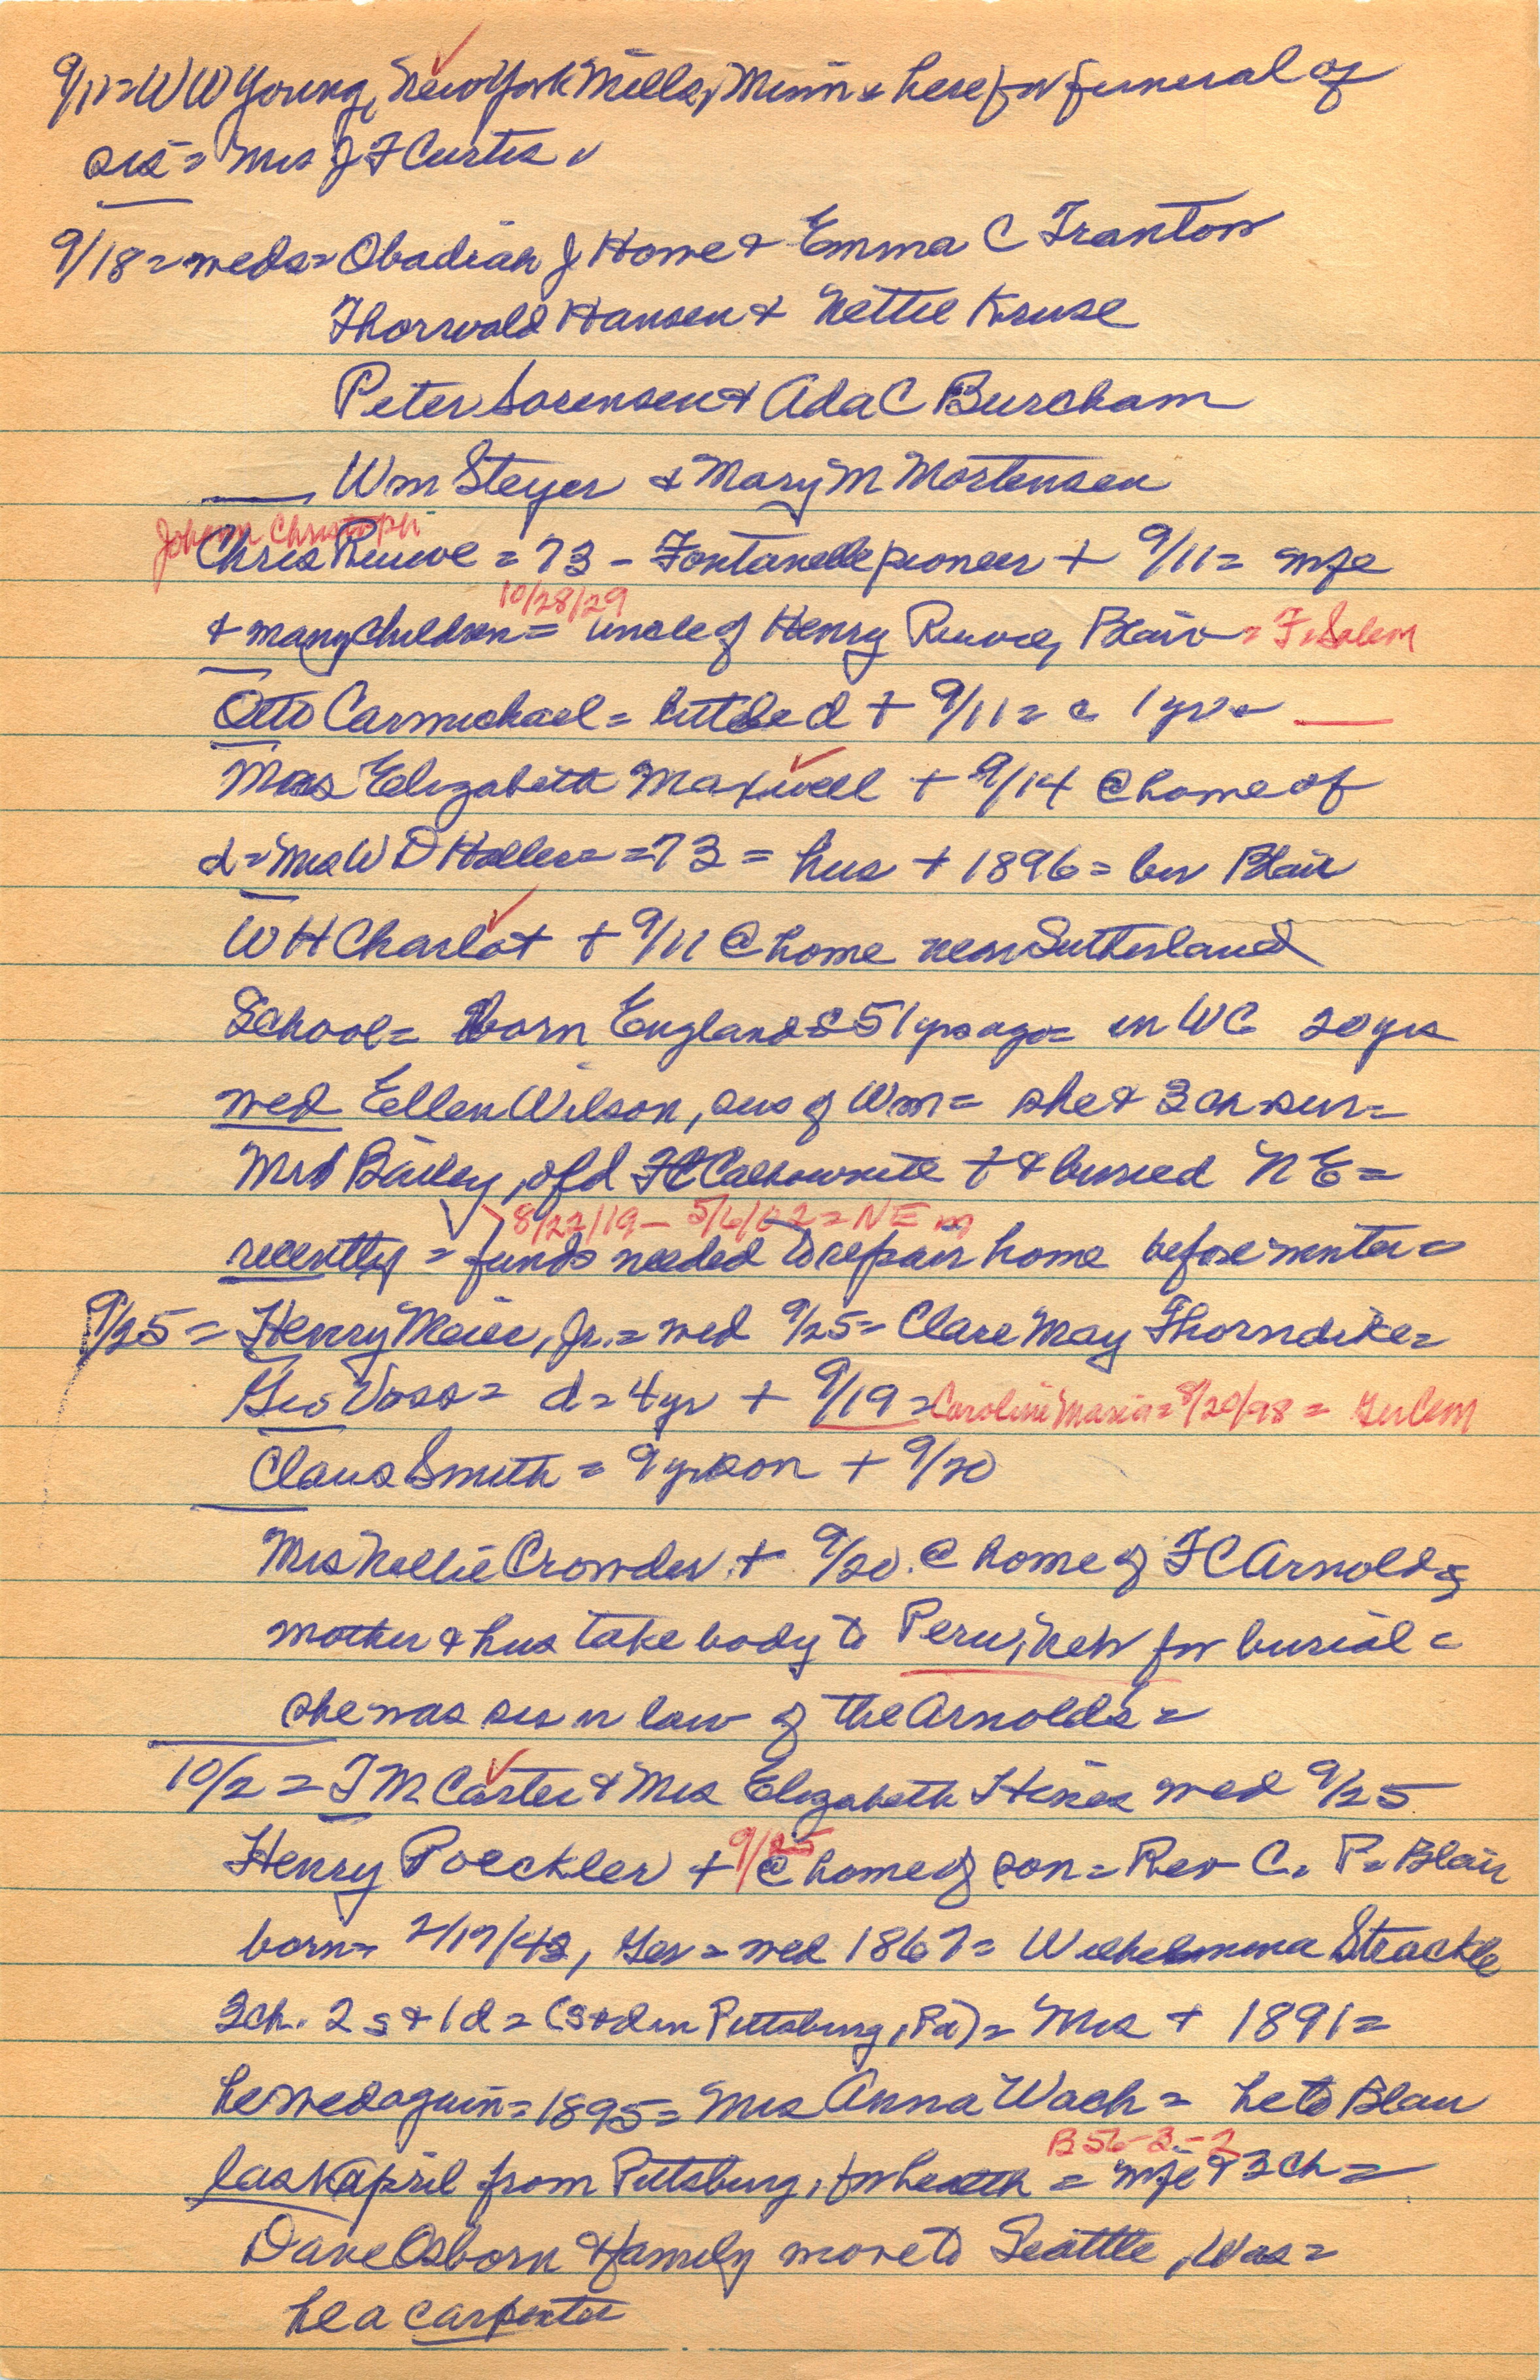 9/11= W W Young, New York Mills, Minn = here for funeral of
sis = Mrs J F Curtis
9/18 = weds = Obadiah J Howe + Emma C Tranton
Thorwald Hansen + Nettie Kruse
Peter Sorensen + Ada C Burcham
Wm Steyer + Mary M Mortensen
Johann Christoph
Chris Reuwe = 73 - Fontanelle pioneer + 9/11 = wife
10/28/29
+ many children = uncle of Henry Reuwe, Blair = F=Salem
Otto Carmichael = little d + 9/11 = c 1 yr =
Mrs Elizabeth Maxwell + 9/14 @ home of
d = Mrs W D Haller = =73 = hus + 1896 = bur Blair
W H Charlot + 9/11 @ home near Sutherland
School = born England 51 yrs ago = in WC 20 yrs
wed Ellen Wilson, sis of Wm = she + 3 ch sur =
Mrs Bailey, old Ft Calhounite + + buried N E =
8/27/19 - 5/6/02 = NE
recently = funds needed to repair home before winter =
9/25 = Henry Maier, Jr. = wed 9/25 = Clare May Thorndike =
Geo Voss = d = 4 yr + 9/19 = Caroline Maria = 8/20/98 = Ger Cem
Claus Smith = 9 yr son + 9/20
Mrs Nellie Crowder + 9/20 @ home of F C Arnold =
mother + hus take body to Peru, Neb for burial =
she was sis n law of the Arnolds =
10/2 = T M Carter + Mrs Elizabeth Hines wed 9/25
Henry Poeckler + 9/25 @ home of son = Rev C. P = Blair
born = 2/17/43, Ger = wed 1867 = Wilhelmina Strackle
3ch. 2 s + 1 d = (s + d in Pittsburg, Pa) = Mrs + 1891 =
he wed again = 1895 = Mrs Anna Wach = he to Blair
B 56-3-2
last April from Pittsburg, for health = wife + 3 ch =
Dave Osborn + family move to Seattle, Was =
he a carpenter